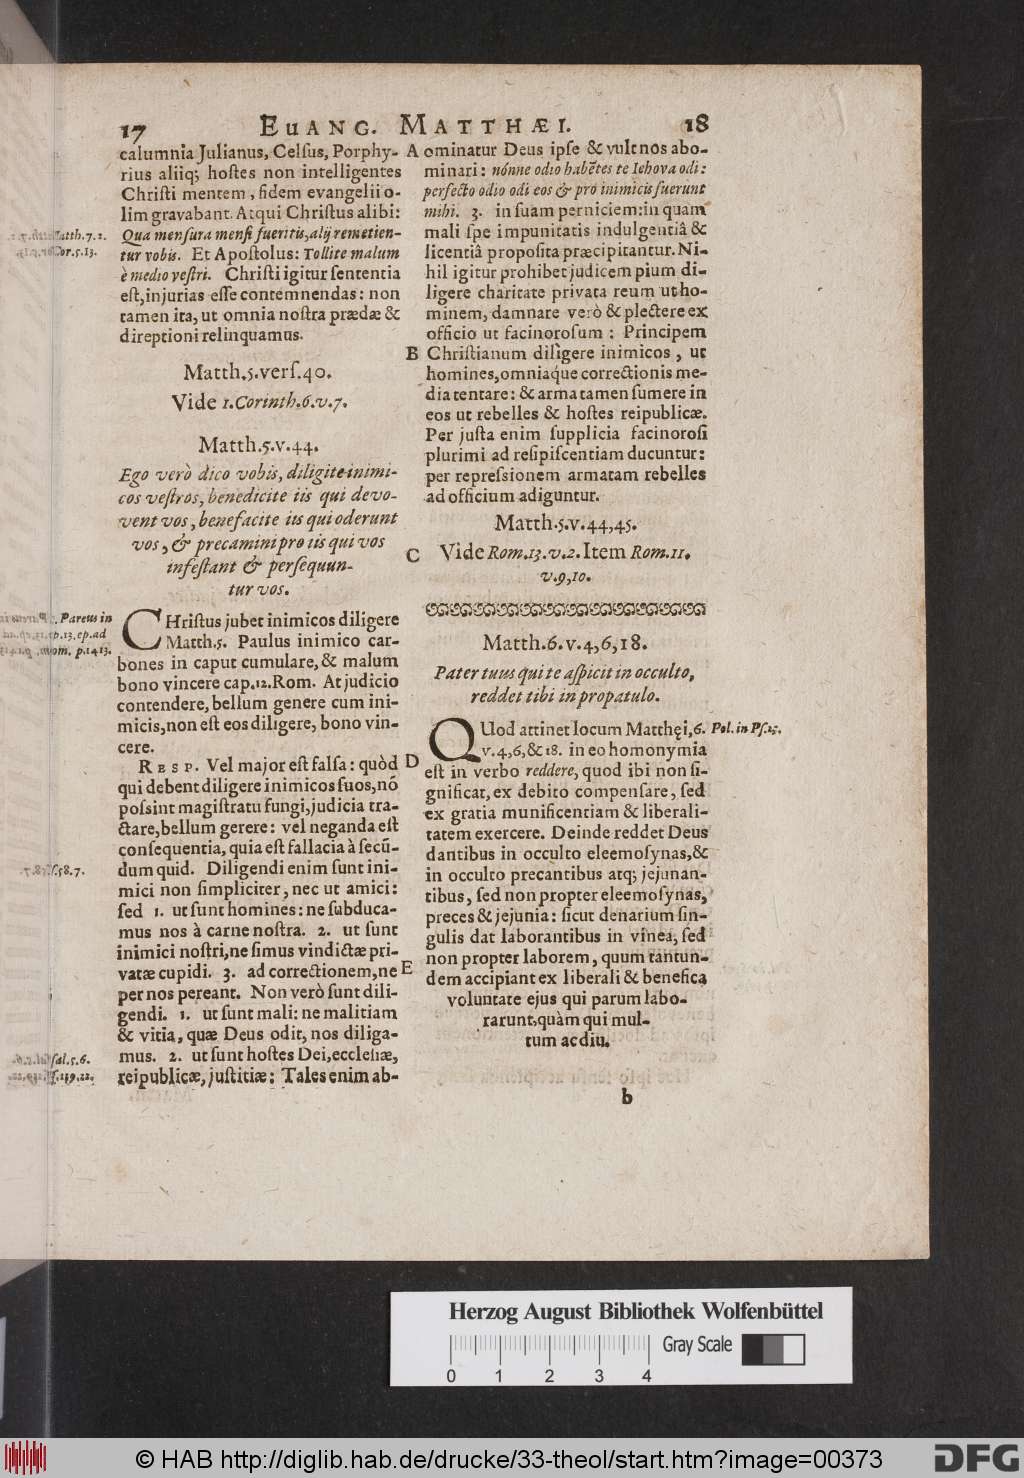 17 EUANG. MATTHÆI. 18
calumnia Julianus, Celsus, Porphy-
rius aliiq; hostes non intelligentes
Christi mentem, fidem evangelii o-
lim gravabant. Atqui Christus alibi:
Matth.7.2.
Qua mensura mensi fueritis, alij remetien-
tur vobis. Et Apostolus: Tollite malum
Cor.5.13.
è medio vestri. Christi igitur sententia
est, injurias esse contemnendas: non
tamen ita, ut omnia nostra prædæ &
direptioni relinquamus.
Matth.5.vers.40.
Vide 1.Corinth.6.v.7.
Matth.5.v.44.
Ego verò dico vobis, diligite inimi-
cos vestros, benedicite iis qui devo-
vent vos, benefacite iis qui oderunt
vos, & precamini pro iis qui vos
infestant & persequun-
tur vos.
Pareus in
p.13.ep.ad
om. p.1413.
CHristus jubet inimicos diligere
Matth.5. Paulus inimico car-
bones in caput cumulare, & malum
bono vincere cap.12.Rom. At judicio
contendere, bellum genere cum ini-
micis, non est eos diligere, bono vin-
cere.
RESP. Vel major est falsa: quòd
qui debent diligere inimicos suos, nõ
possint magistratu fungi, judicia tra-
ctare, bellum gerere: vel neganda est
consequentia, quia est fallacia à secũ-
58.7.
dum quid. Diligendi enim sunt ini-
mici non simpliciter, nec ut amici:
sed 1. ut sunt homines: ne subduca-
mus nos à carne nostra. 2. ut sunt
inimici nostri, ne simus vindictæ pri-
vatæ cupidi. 3. ad correctionem, ne
per nos pereant. Non verò sunt dili-
gendi. 1. ut sunt mali: ne malitiam
& vitia, quæ Deus odit, nos diliga-
sal.5.6.
mus. 2. ut sunt hostes Dei, ecclesiæ,
119.22.
reipublicæ, justitiæ: Tales enim ab-
A ominatur Deus ipse & vult nos abo-
minari: nónne odio habētes te Iehova odi:
perfecto odio odi eos & pro inimicis fuerunt
mihi. 3. in suam perniciem: in quam
mali spe impunitatis indulgentiâ &
licentiâ proposita præcipitantur. Ni-
hil igitur prohibet judicem pium di-
ligere charitate privata reum ut ho-
minem, damnare verò & plectere ex
officio ut facinorosum: Principem
B Christianum diligere inimicos, ut
homines, omniaque correctionis me-
dia tentare: & arma tamen sumere in
eos ut rebelles & hostes reipublicæ.
Per justa enim supplicia facinorosi
plurimi ad resipiscentiam ducuntur:
per repressionem armatam rebelles
ad officium adiguntur.
Matth.5.v.44,45.
C Vide Rom.13.v.2. Item Rom.11.
v.9,10.
Matth.6.v.4,6,18.
Pater tuus qui te aspicit in occulto,
reddet tibi in propatulo.
QUod attinet locum Matthęi,6. Pol. in Ps.25.
v.4,6,&18. in eo homonymia
D est in verbo reddere, quod ibi non si-
gnificat, ex debito compensare, sed
ex gratia munificentiam & liberali-
tatem exercere. Deinde reddet Deus
dantibus in occulto eleemosynas, &
in occulto precantibus atq; jejunan-
tibus, sed non propter eleemosynas,
preces & jejunia: sicut denarium sin-
gulis dat laborantibus in vinea, sed
non propter laborem, quum tantun-
E dem accipiant ex liberali & benefica
voluntate ejus qui parum labo-
rarunt, quàm qui mul-
tum ac diu.
b
Herzog August Bibliothek Wolfenbüttel
Gray Scale
0 1 2 3 4
© HAB http://diglib.hab.de/drucke/33-theol/start.htm?image=00373
DFG